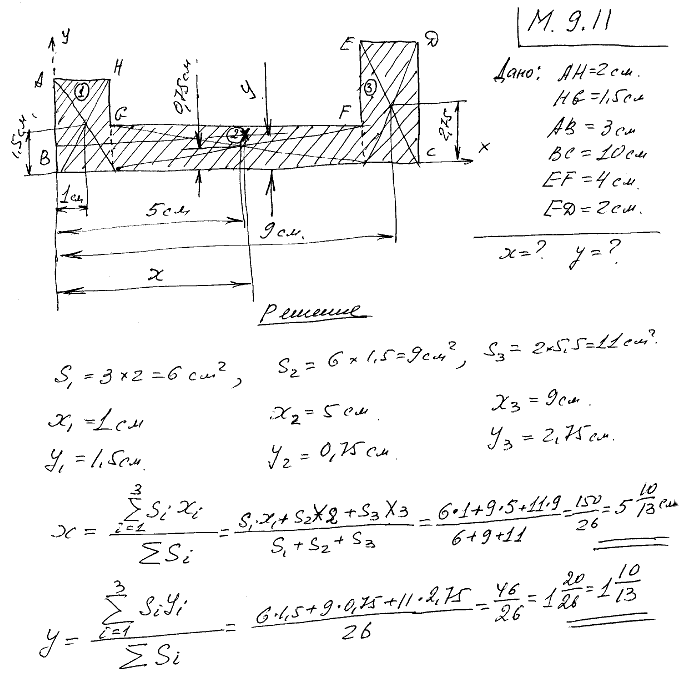 М. 9.11
Дано: AH=2см.
HG=1,5см
AB=3см
BC=10см
EF=4см.
ED=2см.
x=? y=?
y
A
H
E
D
1
3
0,75см
y
G
F
1,5см
2
2,75
B
C
x
1см
5см
9см.
x
Решение
S₁=3×2=6см², S₂=6×1,5=9см², S₃=2×5,5=11см².
x₁=1см x₂=5см. x₃=9см.
y₁=1,5см. y₂=0,75см. y₃=2,75см.
x = \frac{\sum_{i=1}^{3} S_i x_i}{\sum S_i} = \frac{S_1·x_1+S_2 x_2+S_3 x_3}{S_1+S_2+S_3} = \frac{6·1+9·5+11·9}{6+9+11} = \frac{150}{26} = 5\frac{10}{13}см
y = \frac{\sum_{i=1}^{3} S_i y_i}{\sum S_i} = \frac{6·1,5+9·0,75+11·2,75}{26} = \frac{46}{26} = 1\frac{20}{26} = 1\frac{10}{13}